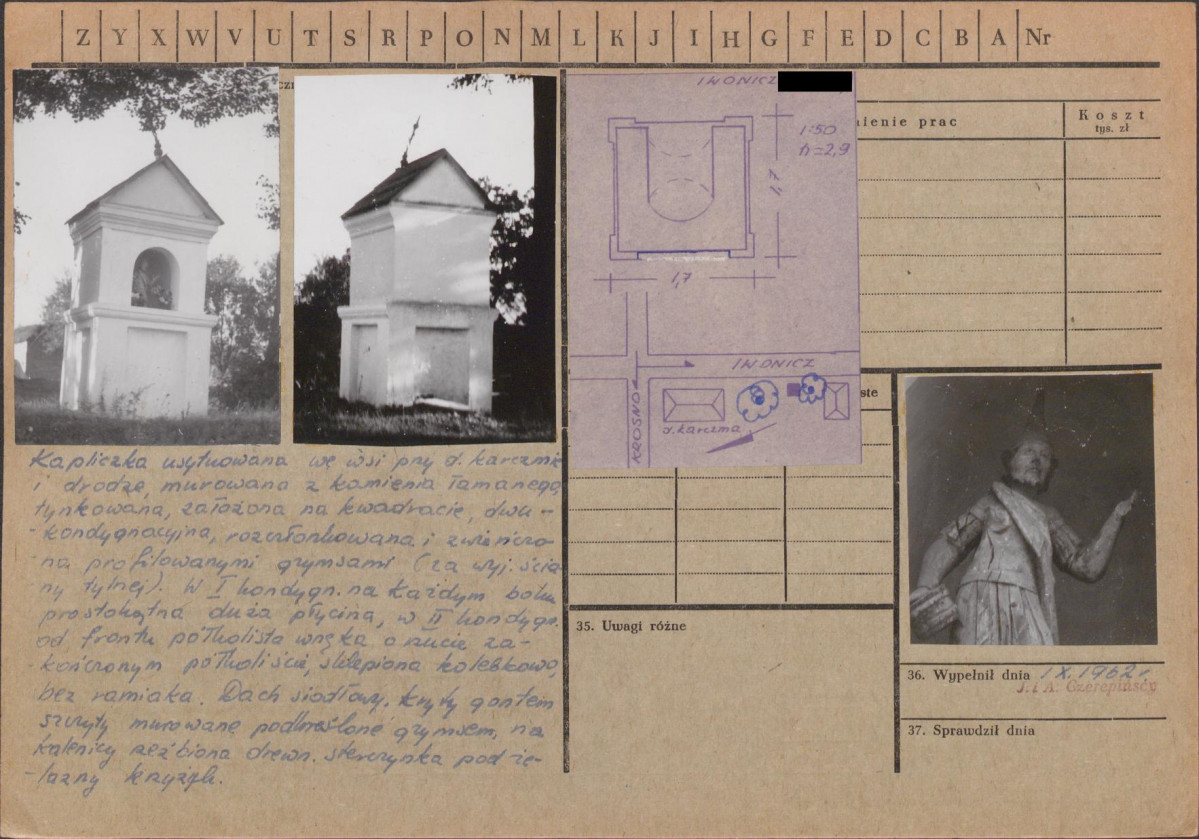 Z Y X W V U T S R P O N M L K J I H G F E D C B A Nr
IWONICZ
1:50
h=2,9
1,7
1,7
IWONICZ
KROSNO
d. karczma
nienie prac
Koszt
tys. zł
ste
Kapliczka usytuowana we wsi przy d. karczmie
i drodze, murowana z kamienia łamanego,
tynkowana, założona na kwadracie, dwu-
-kondygnacyjna, rozczłonkowana i zwieńczo-
na profilowanymi gzymsami (za wyj. ścia
ny tylnej). W I kondygn. na każdym boku
prostokątna duża płycina, w II kondygn.
od frontu półkolista wnęka o rzucie za-
-kończonym półkoliście, sklepiona kolebkowo,
bez ramiaka. Dach siodłowy, kryty gontem
szczyty murowane podkreślone gzymsem, na
kalenicy rzeźbiona drewn. sterczynka pod że-
-lazny krzyżyk.
35. Uwagi różne
36. Wypełnił dnia IX.1962 r.
J. i A. Czerepińscy
37. Sprawdził dnia